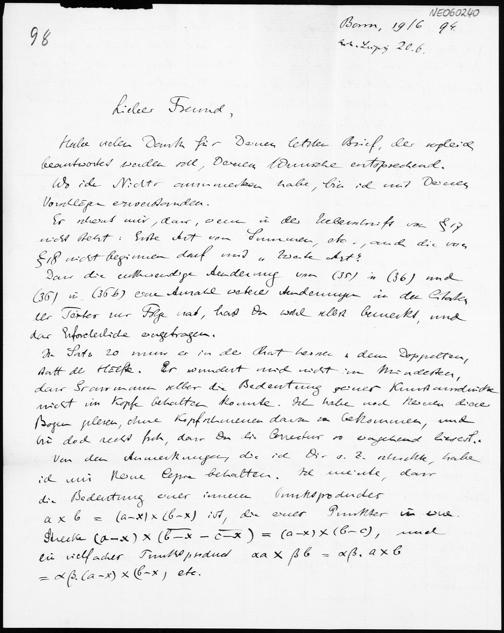 NE060240
98
Bonn, 19/6 94
Leipzig 20.6.
Lieber Freund,
Habe vielen Dank für Deinen letzten Brief, der sogleich
beantwortet werden soll, Deinem Wunsche entsprechend.
Wo ich Nichts anzumerken habe, bin ich mit Deinen
Vorschlägen einverstanden.
Es scheint mir, dass, wenn in der Ueberschrift von § 17
nicht steht: Erste Art von Summen, etc., auch die von
§ 18 nicht beginnen darf mit „Zweite Art".
Dass die nothwendige Aenderung von (35) in (36) und
(36) in (36b) eine Anzahl weiterer Aenderungen in den Citaten
der Texter zur Folge hat, hast Du wohl selbst bemerkt, und
das Erforderliche eingetragen.
In Satz 20 muss es in der That heissen: dem Doppelten,
statt der Hälfte. Es wundert mich nicht im Mindesten,
dass Grassmann selber die Bedeutung seiner Kunstausdrücke
nicht im Kopfe behalten konnte. Ich habe noch keinen dieser
Bogen gelesen, ohne Kopfschmerzen davon zu bekommen, und
bin doch recht froh, dass Du die Correctur so eingehend liesest.
Von den Anmerkungen, die ich Dir s. Z. schickte, habe
ich mir keine Copie behalten. Ich meinte, dass
die Bedeutung eines inneren Punktproductes
a × b = (a-x) × (b-x) ist, das einer Punktes in eine
Strecke (a-x) × (b-x - c-x) = (a-x) × (b-c), und
ein vielfacher Punktproduct αa × βb = αβ. a × b
= αβ.(a-x) × (b-x), etc.